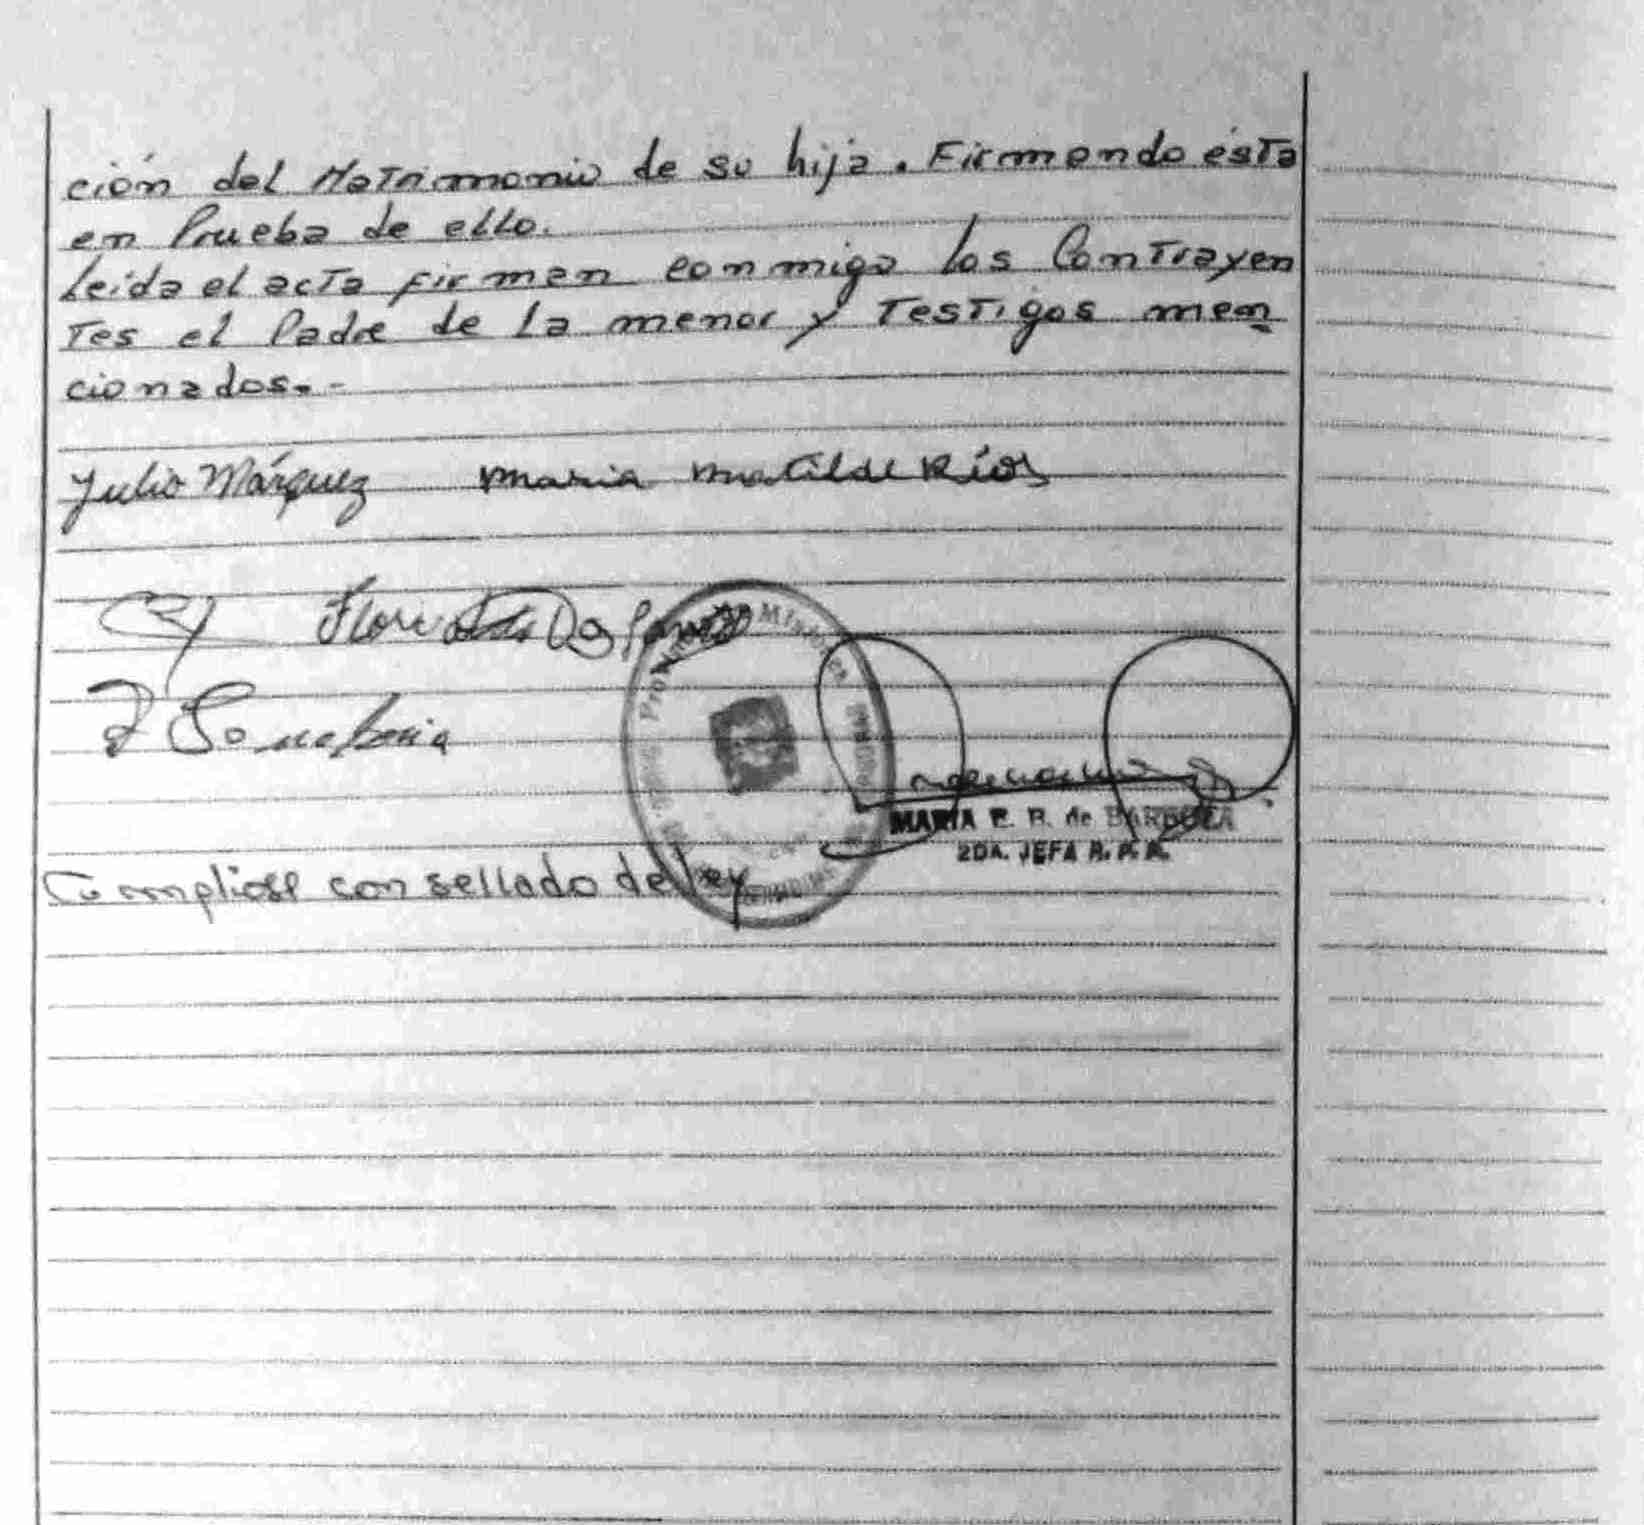 ción del Matrimonio de su hija. Firmando ésta
en Prueba de ello.
Leida el acta firman conmigo los Contrayen
tes el Padre de la menor y Testigos men
cionados.-
Julio Márquez Maria Matilde Ríos
MARIA E. R. de BARBOZA
2DA. JEFA R.P.
Cumpliose con sellado de ley